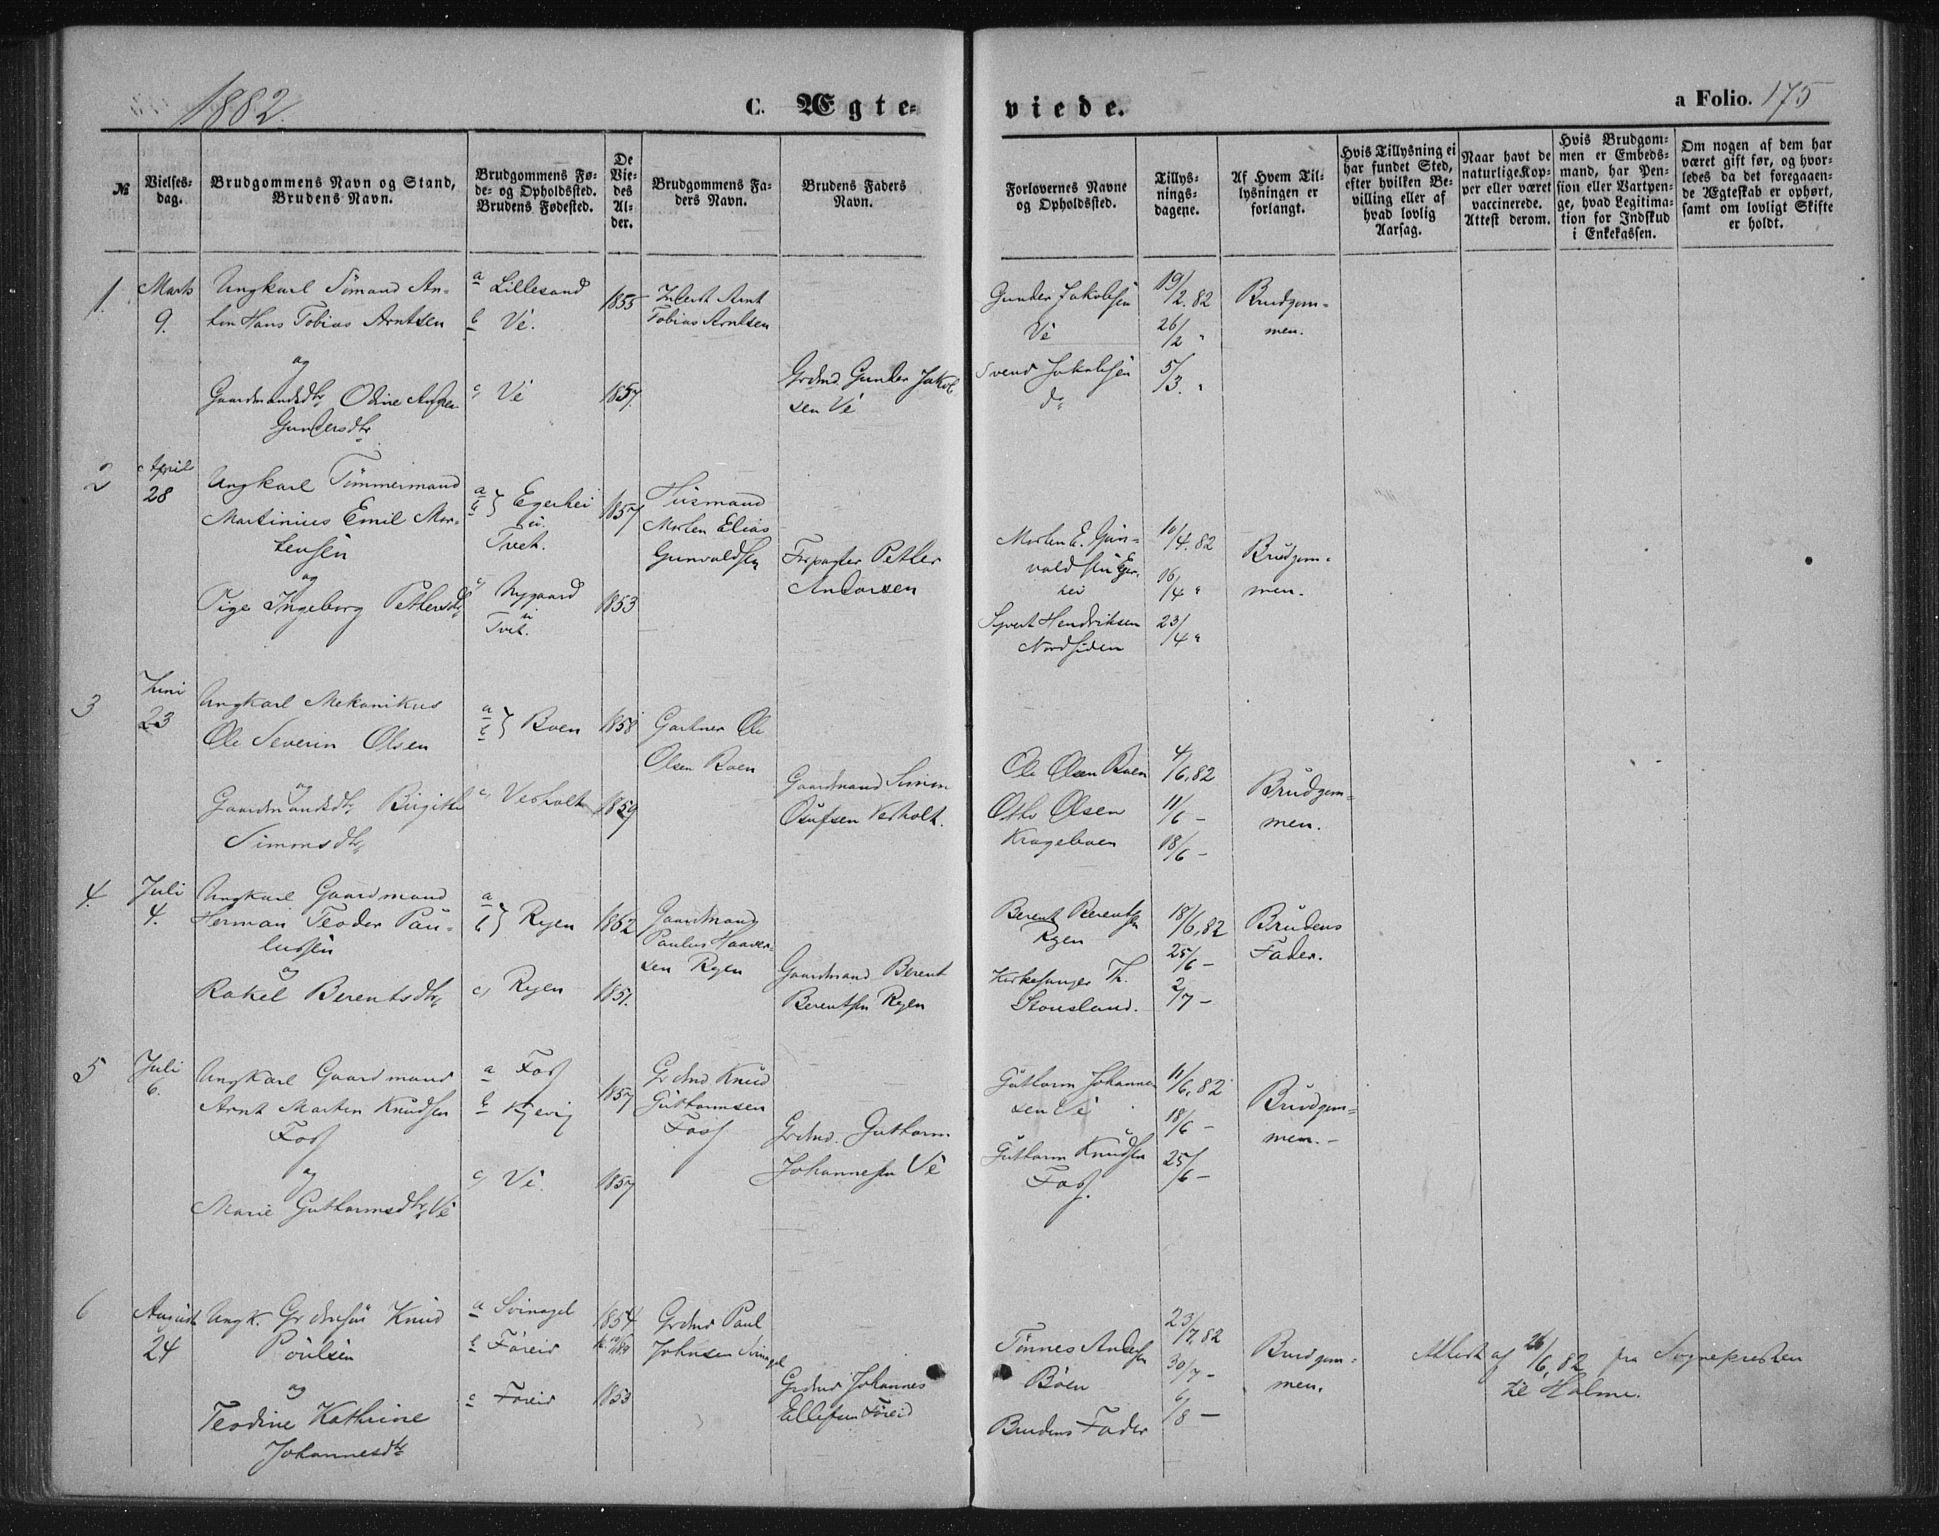 1882.
C. Ægte-
viede.
a Folio. 175
№
Vielses-
dag.
Brudgommens Navn og Stand,
Brudens Navn.
Brudgommens Fø-
de- og Opholdssted.
Brudens Fødested.
De
Vie-
des
Al-
der.
Brudgommens Fa-
ders Navn.
Brudens Faders
Navn.
Forlovernes Navne
og Opholdssted.
Tillys-
nings-
dagene.
Af Hvem Til-
lysningen er
forlangt.
Hvis Tillysning ei
har fundet Sted,
efter hvilken Be-
villing eller af
hvad lovlig
Aarsag.
Naar havt de
naturlige Kop-
per eller været
vaccinerede.
Attest derom.
Hvis Brudgom-
men er Embeds-
mand, har Pen-
sion eller Vartpen-
ge, hvad Legitima-
tion for Indskud
i Enkekassen.
Om nogen af dem har
været gift før, og hvor-
ledes da det foregaaen-
de Ægteskab er ophørt,
samt om lovligt Skifte
er holdt.
1.
Marts
9.
Ungkarl Sømand An-
ton Hans Tobias Arntsen
og
Gaardmandsdtr Odine
Gundersdtr
a Lillesand
b Ve.
c Ve
1855
1857.
Arnt
Tobias Arntsen
Grdmd. Gunder Jakob-
sen Ve
Gunder Jakobsen
Ve
Svend Jakobsen
do
19/2.82
26/2 "
5/3. "
Brudgom-
men.
2
April
28
Ungkarl Tømmermand
Martinius Emil Mor-
tensen
og
Pige Ingeborg Pettersdtr
a
b } Egerhei
i
Tvet.
c, Nygaard
i
Tvet.
1857
1853
Husmand
Morten Elias
Gunvaldsen
Forpagter Petter
Andersen
Morten E. Gun-
valdsen Eger-
hei
Syvert Hendriksen
Nordsiden
10/4.82
16/4 "
23/4 "
Brudgom-
men.
3
Juni
23
Ungkarl Mekanikus
Ole Severin Olsen
og
Gaardmandsdtr Birgitte
Simonsdtr
a
b } Boen
c, Vesholt
1858
1859
Gartner Ole
Olsen Boen
Gaardmand Simon
Osufsen Vesholt.
Ole Olsen Boen
Otto Olsen
Krageboen
4/6.82
11/6 –
18/6 –
Brudgom-
men.
4.
Juli
4.
Ungkarl Gaardmand
Herman Teodor Pau-
lussen
og
Rakel Berentsdtr
a
b } Ryen
c, Ryen
1862
1857.
Gaardmand
Paulus Haaver-
sen Ryen
Gaardmand Berent
Berentsen Ryen
Berent Berentsen
Ryen
Kirkesanger Th.
Stousland.
18/6.82
25/6 –
2/7 –
Brudens
Fader.
5
Juli
6.
Ungkarl Gaardmand
Arnt Morten Knudsen
Foss
og
Marie Guttormsdtr Ve
a Foss
b Kjevig
c, Ve.
1857
1857
Grdmd Knud
Guttormsen
Foss
Grdmd. Guttorm
Johannesen Ve
Guttorm Johanne-
sen Ve
Guttorm Knudsen
Foss.
11/6.82
18/6 –
25/6 –
Brudgom-
men. –
6
August
24
Ungk. Grdmsøn Knud
Poulsen
og
Teodine Kathrine
Johannesdtr
a Svinagel
b Føreid
c Føreid
1854
1853
Grdmd Paul
Johnsen Svinagel
Grdmd Johannes
Ellefsen Føreid
Tønnes Andersen
Boen
Brudens Fader
23/7.82
30/7 –
6/8 –
Brudgom-
men.
Attest af 26/6.82 fra Sognepresten
til Holme.